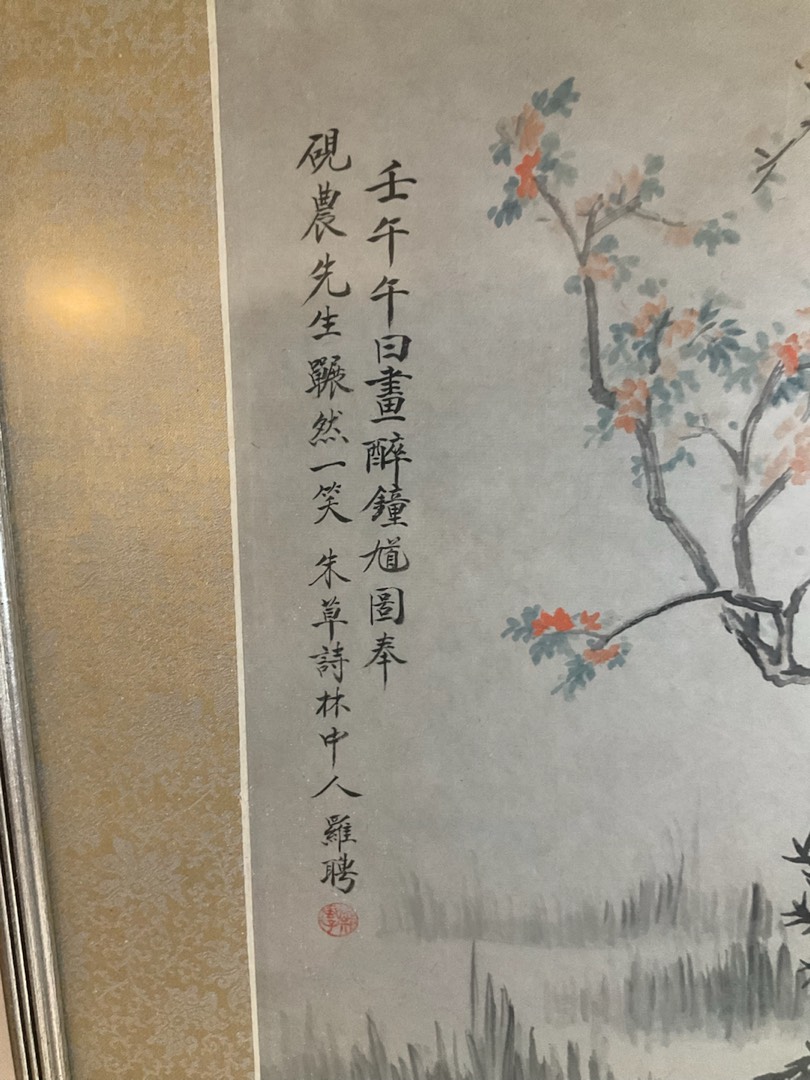 壬午午日畫醉鐘馗圖奉
硯農先生囅然一笑 朱草詩林中人 羅聘